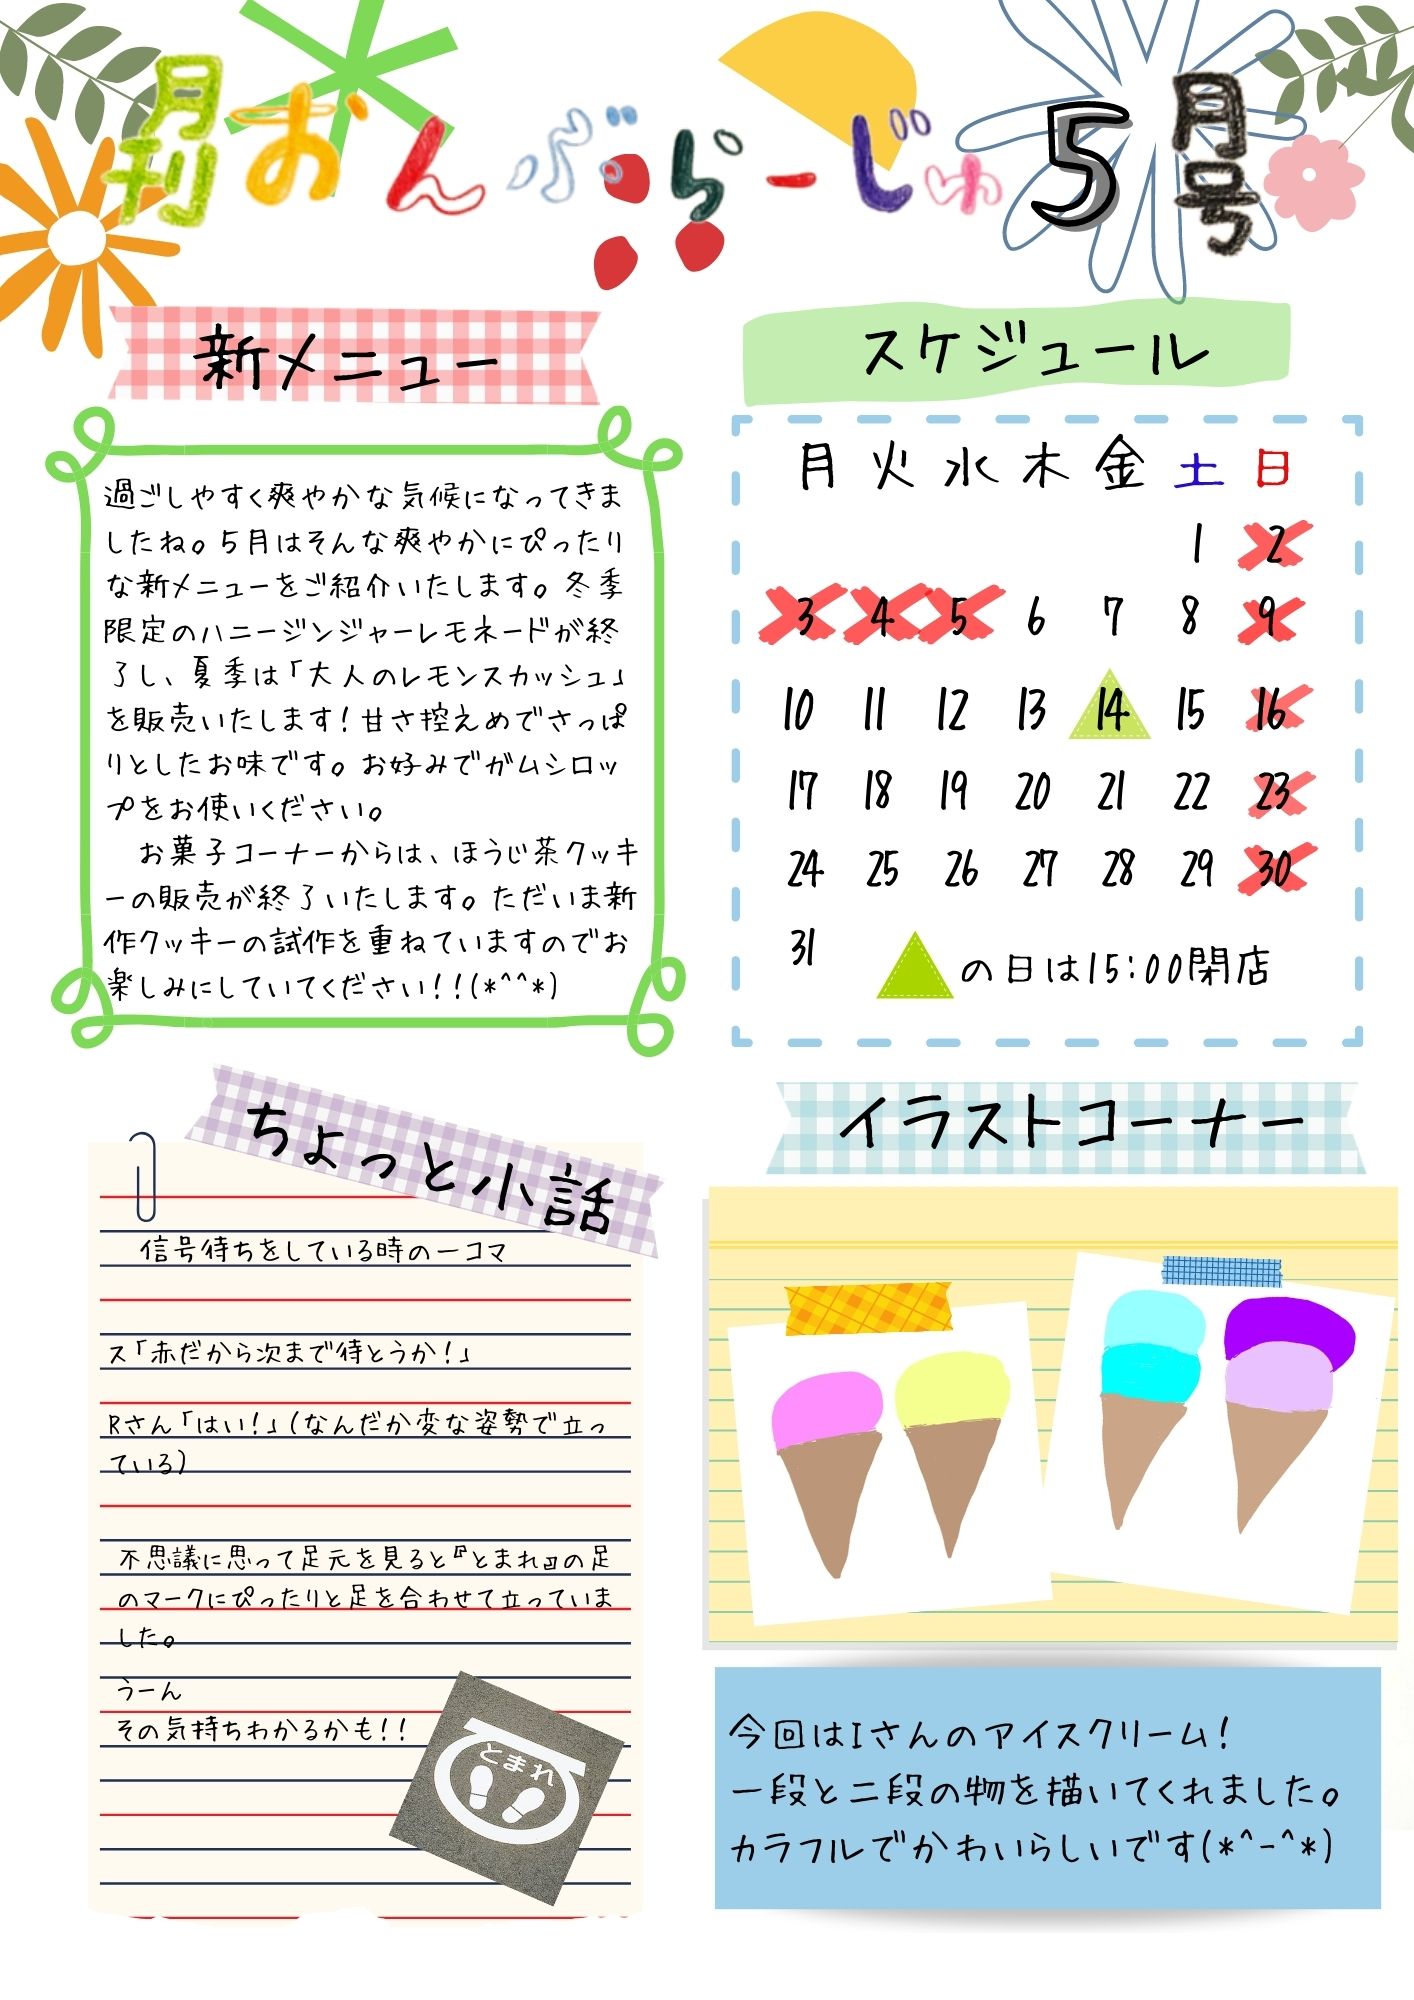 月刊おんぶらーじゅ5月号
新メニュー
過ごしやすく爽やかな気候になってきま
したね。5月はそんな爽やかにぴったり
な新メニューをご紹介いたします。冬季
限定のハニージンジャーレモネードが終
了し、夏季は「大人のレモンスカッシュ」
を販売いたします!甘さ控えめでさっぱ
りとしたお味です。お好みでガムシロッ
プをお使いください。
　お菓子コーナーからは、ほうじ茶クッキ
ーの販売が終了いたします。ただいま新
作クッキーの試作を重ねていますのでお
楽しみにしていてください!!(*^^*)
スケジュール
月 火 水 木 金 土 日
1 2
3 4 5 6 7 8 9
10 11 12 13 14 15 16
17 18 19 20 21 22 23
24 25 26 27 28 29 30
31
の日は15:00閉店
ちょっと小話
信号待ちをしている時の一コマ
ス「赤だから次まで待とうか!」
Rさん「はい!」(なんだか変な姿勢で立っ
ている)
不思議に思って足元を見ると『とまれ』の足
のマークにぴったりと足を合わせて立っていま
した。
うーん
その気持ちわかるかも!!
とまれ
イラストコーナー
今回はIさんのアイスクリーム!
一段と二段の物を描いてくれました。
カラフルでかわいらしいです(*^-^*)